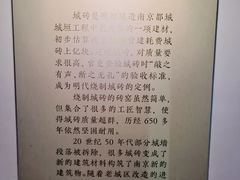 城砖是明代建造南京都城
城垣工程中的一项建材,
初步估算 营建耗费城
砖上亿块, 对质量要
求很高, 官吏要验城砖时“敲之
有声, 断之无孔”的验收标准,
成为明代烧制城砖的定例。
烧制城砖的砖窑虽然简单,
但集合了很多的工匠智慧, 使
得城砖质量超群, 历经 650 多
年依然坚固耐用。
20 世纪 50 年代部分城墙
段落被拆除, 很多城砖变成了
新的建筑材料构筑了南京新的
建筑物。随着老城区改造的进